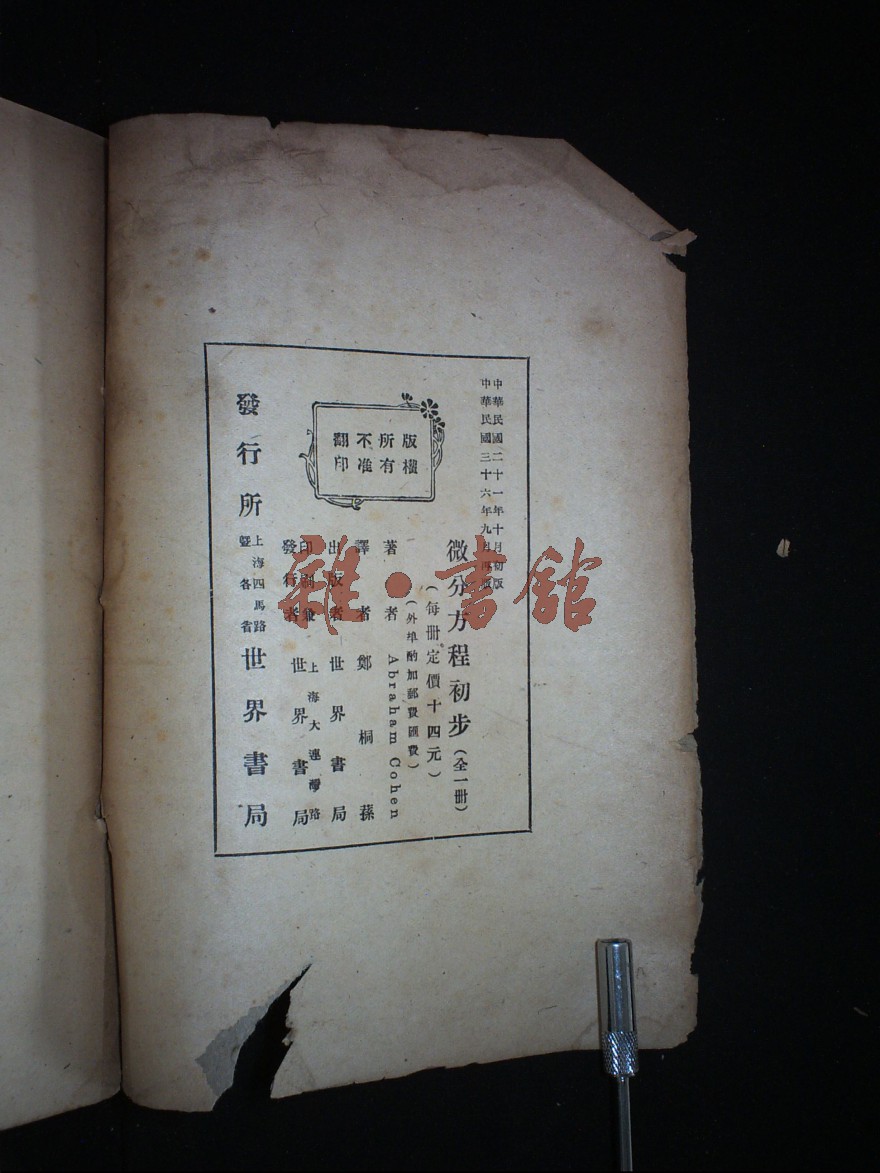 中華民國二十一年十月初版
中華民國三十六年九月再版
微分方程初步(全一冊)
(每冊定價十四元)
(外埠酌加郵費匯費)
版權
所有
不准
翻印
著者 Abraham Cohen
譯者 鄭桐蓀
出版者 世界書局
上海大連灣路
印刷兼
發行者 世界書局
發行所 上海四馬路
暨各省 世界書局
雜·書館